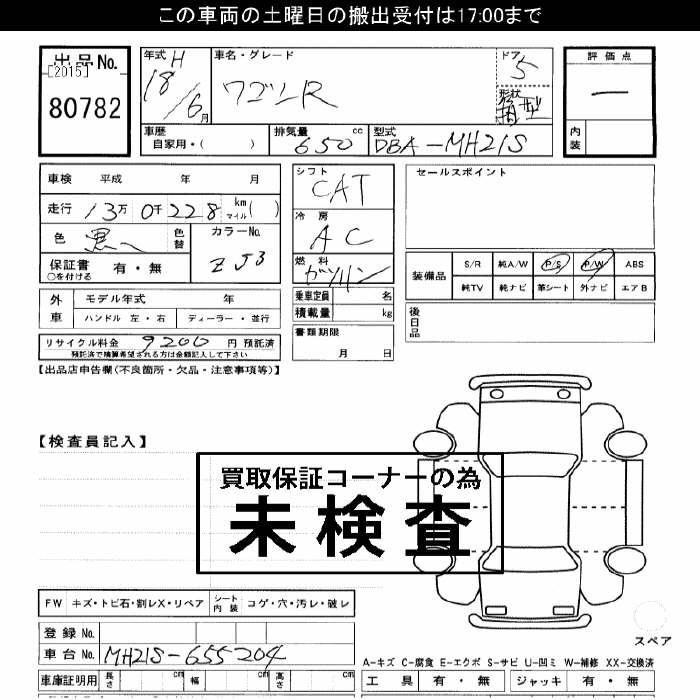 この車両の土曜日の搬出受付は17:00まで
出品No.
[2015]
80782
年式 H 18/6月
車名・グレード
ワゴンR
ドア 5
形状 箱型
評価点
一
内装
車歴
自家用・( )
排気量 650 cc
型式 DBA-MH21S
車検 平成 年 月
走行 13万0千228 km マイル( )
色 黒
色替
カラーNo.
ZJ3
保証書 有・無
○を付ける
外車
モデル年式 年
ハンドル 左・右 ディーラー・並行
リサイクル料金 9200 円 預託済
預託済で精算希望される方は金額記入して下さい
シフト
CAT
冷房
AC
燃料
ガソリン
乗車定員 名
積載量 kg
書類期限
月 日
セールスポイント
装備品
S/R 純A/W P/S P/W ABS
純TV 純ナビ 革シート 外ナビ エアB
後日品
【出品店申告欄(不良箇所・欠品・注意事項等)】
【検査員記入】
買取保証コーナーの為
未検査
FW キズ・トビ石・割レX・リペア シート内装 コゲ・穴・汚レ・破レ
登録No.
車台No. MH21S-655204
車庫証明用 長さ cm 幅 cm 高さ cm
スペア
A-キズ C-腐食 E-エクボ S-サビ U-凹ミ W-補修 XX-交換済
工具 有・無 ジャッキ 有・無